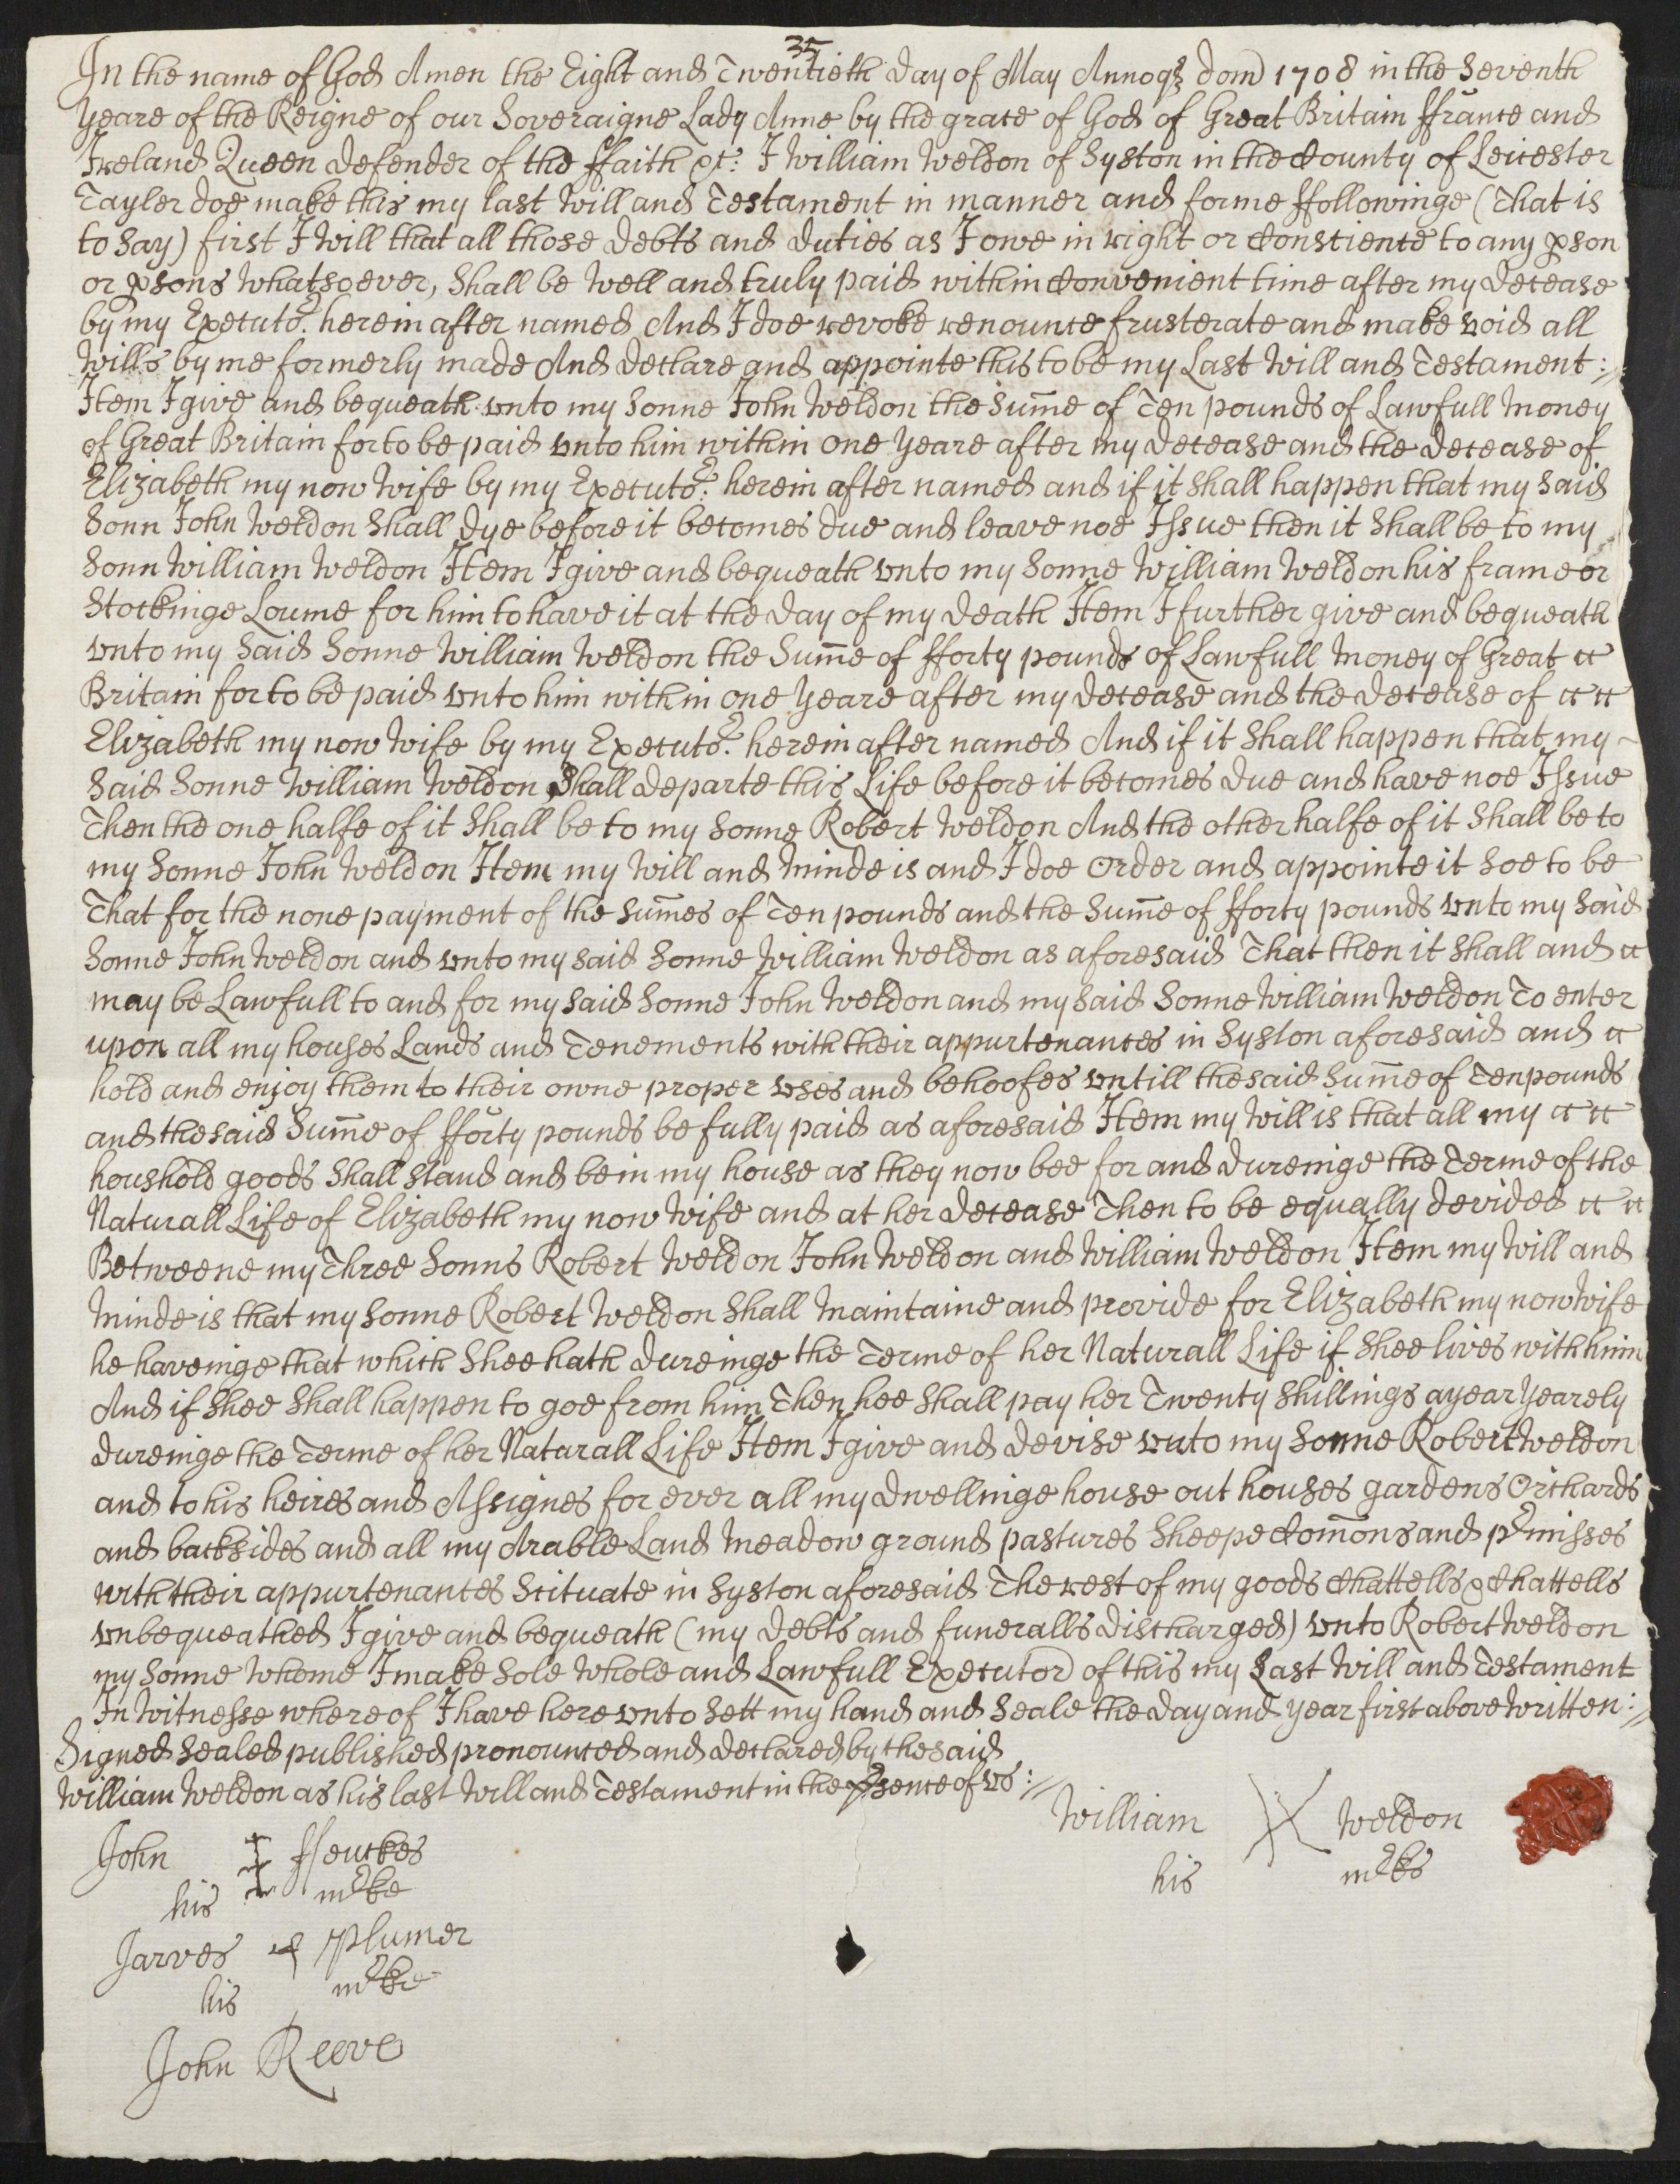 35
In the name of God Amen the Eight and Twentieth day of May Annoq3 dom 1708 in the Seventh
Yeare of the Reigne of our Soveraigne Lady Anne by the grace of God of Great Britain ffrance and
Ireland Queen defender of the ffaith &c: I William Weldon of Syston in the County of Leicester
Tayler doe make this my last Will and Testament in manner and forme ffollowinge (That is
to say) first I Will that all those debts and duties as I owe in right or Constience to any pson
or psons Whatsoever, Shall be Well and truly paid within Convenient time after my decease
by my Executor: herein after named And I doe revoke renounce frusterate and make void all
Wills by me formerly made And declare and appointe this to be my Last Will and Testament ://
Item I give and bequeath vnto my Sonne John Weldon the Sum̄e of Ten pounds of Lawfull Money
of Great Britain for to be paid vnto him within one Yeare after my decease and the decease of
Elizabeth my now Wife by my Executor: herein after named and if it Shall happen that my Said
Sonn John Weldon Shall dye before it becomes due and leave noe Issue then it Shall be to my
Sonn William Weldon Item I give and bequeath vnto my Sonne William Weldon his frame or
Stockinge Loume for him to have it at the day of my death Item I further give and bequeath
vnto my Said Sonne William Weldon the Sum̄e of fforty pounds of Lawfull Money of Great
Britain for to be paid vnto him within one Yeare after my decease and the decease of
Elizabeth my now Wife by my Executor: herein after named And if it Shall happen that my ~
Said Sonne William Weldon Shall departe this Life before it becomes due and have noe Issue
Then the one halfe of it Shall be to my Sonne Robert Weldon And the other halfe of it Shall be to
my Sonne John Weldon Item my Will and Minde is and I doe Order and appointe it Soe to be
That for the none payment of the Sum̄es of Ten pounds and the Sum̄e of fforty pounds vnto my Said
Sonne John Weldon and vnto my Said Sonne William Weldon as aforesaid That then it Shall and
may be Lawfull to and for my Said Sonne John Weldon and my Said Sonne William Weldon To enter
upon all my houses Lands and Tenements with their appurtenances in Syston aforesaid and
hold and enjoy them to their owne proper vses and behoofes vntill the said Sum̄e of Ten pounds
and the said Sum̄e of fforty pounds be fully paid as aforesaid Item my Will is that all my
houshold goods Shall stand and be in my house as they now bee for and dureinge the Terme of the
Naturall Life of Elizabeth my now Wife and at her decease Then to be equally devided
Betweene my Three Sonns Robert Weldon John Weldon and William Weldon Item my Will and
Minde is that my Sonne Robert Weldon Shall Maintaine and provide for Elizabeth my now Wife
he haveinge that which Shee hath dureinge the Terme of her Naturall Life if Shee lives with him
And if Shee Shall happen to goe from him Then hee Shall pay her Twenty Shillings a year Yearely
dureinge the Terme of her Naturall Life Item I give and devise vnto my Sonne Robert Weldon
and to his heires and Assignes for ever all my dwellinge house out houses gardens Orchards
and backsides and all my Arable Land Meadow ground pastures Sheepe Com̄ons and pmisses
with their appurtenances Scituate in Syston aforesaid The rest of my goods Chattells & Chattells
vnbequeathed I give and bequeath (my debts and funeralls discharged) vnto Robert Weldon
my Sonne Whome I make Sole Whole and Lawfull Executor of this my Last Will and Testament
In Witnesse where of I have here vnto Sett my hand and Seale the day and year first above Written ://
Signed Sealed published pronounced and declared by the said
William Weldon as his last Will and Testament in the psence of vs ://
William X Weldon
his mke
John ffeuckes
his mke
Jarves Plumer
his mke
John Reeve